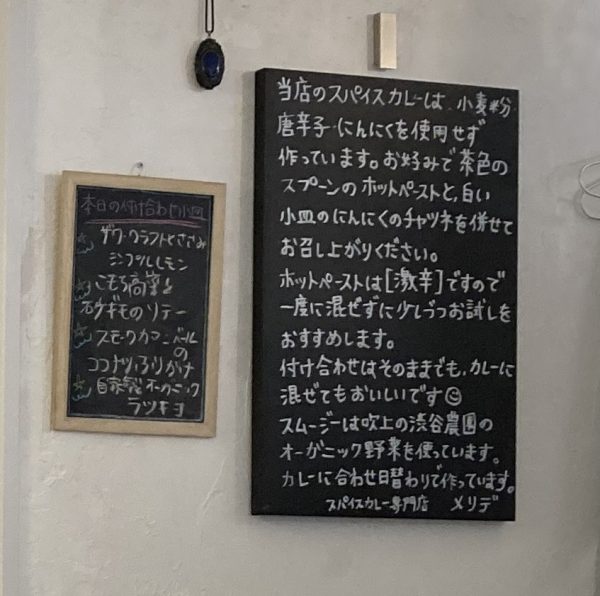 本日の付け合わせ小皿
ザワークラフトとささみ
こもち高菜と
のソテー
スモークカマンベールの
ココナツふりかけ
自家製オーガニック
ラッキョ
当店のスパイスカレーは、小麦粉
唐辛子・にんにくを使用せず
作っています。お好みで茶色の
スプーンのホットペーストと、白い
小皿のにんにくのチャツネを併せて
お召し上がりください。
ホットペーストは[激辛]ですので
一度に混ぜずに少しづつお試しを
おすすめします。
付け合わせはそのままでも、カレーに
混ぜてもおいしいです☺
スムージーは吹上の渋谷農園の
オーガニック野菜を使っています。
カレーに合わせ日替わりで作っています。
スパイスカレー専門店 メリデ